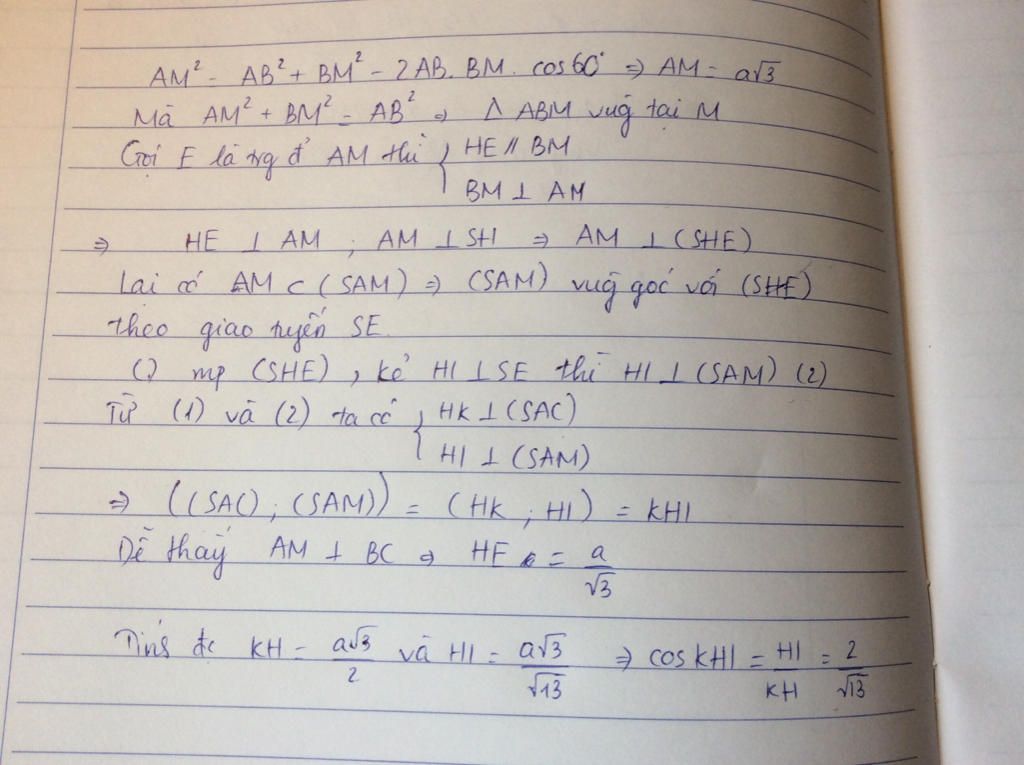 AM² = AB² + BM² - 2AB. BM. cos60° ⇒ AM = a√3
Mà AM² + BM² = AB² ⇒ Δ ABM vug̃ tại M
Gọi E là trg đ' AM thì { HE // BM
BM ⊥ AM
⇒ HE ⊥ AM ; AM ⊥ SH ⇒ AM ⊥ (SHE)
Lại có AM ⊂ (SAM) ⇒ (SAM) vug̃ góc với (SHE)
theo giao tuyến SE.
Ở mp (SHE), kẻ HI ⊥ SE thì HI ⊥ (SAM) (2)
Từ (1) và (2) ta có { HK ⊥ (SAC)
HI ⊥ (SAM)
⇒ ((SAC) ; (SAM)) = (HK ; HI) = KHI
Dễ thấy AM ⊥ BC ⇒ HE = a/√3
Tính đc KH = a√3/2 và HI = a√3/√13 ⇒ cos KHI = HI/KH = 2/√13